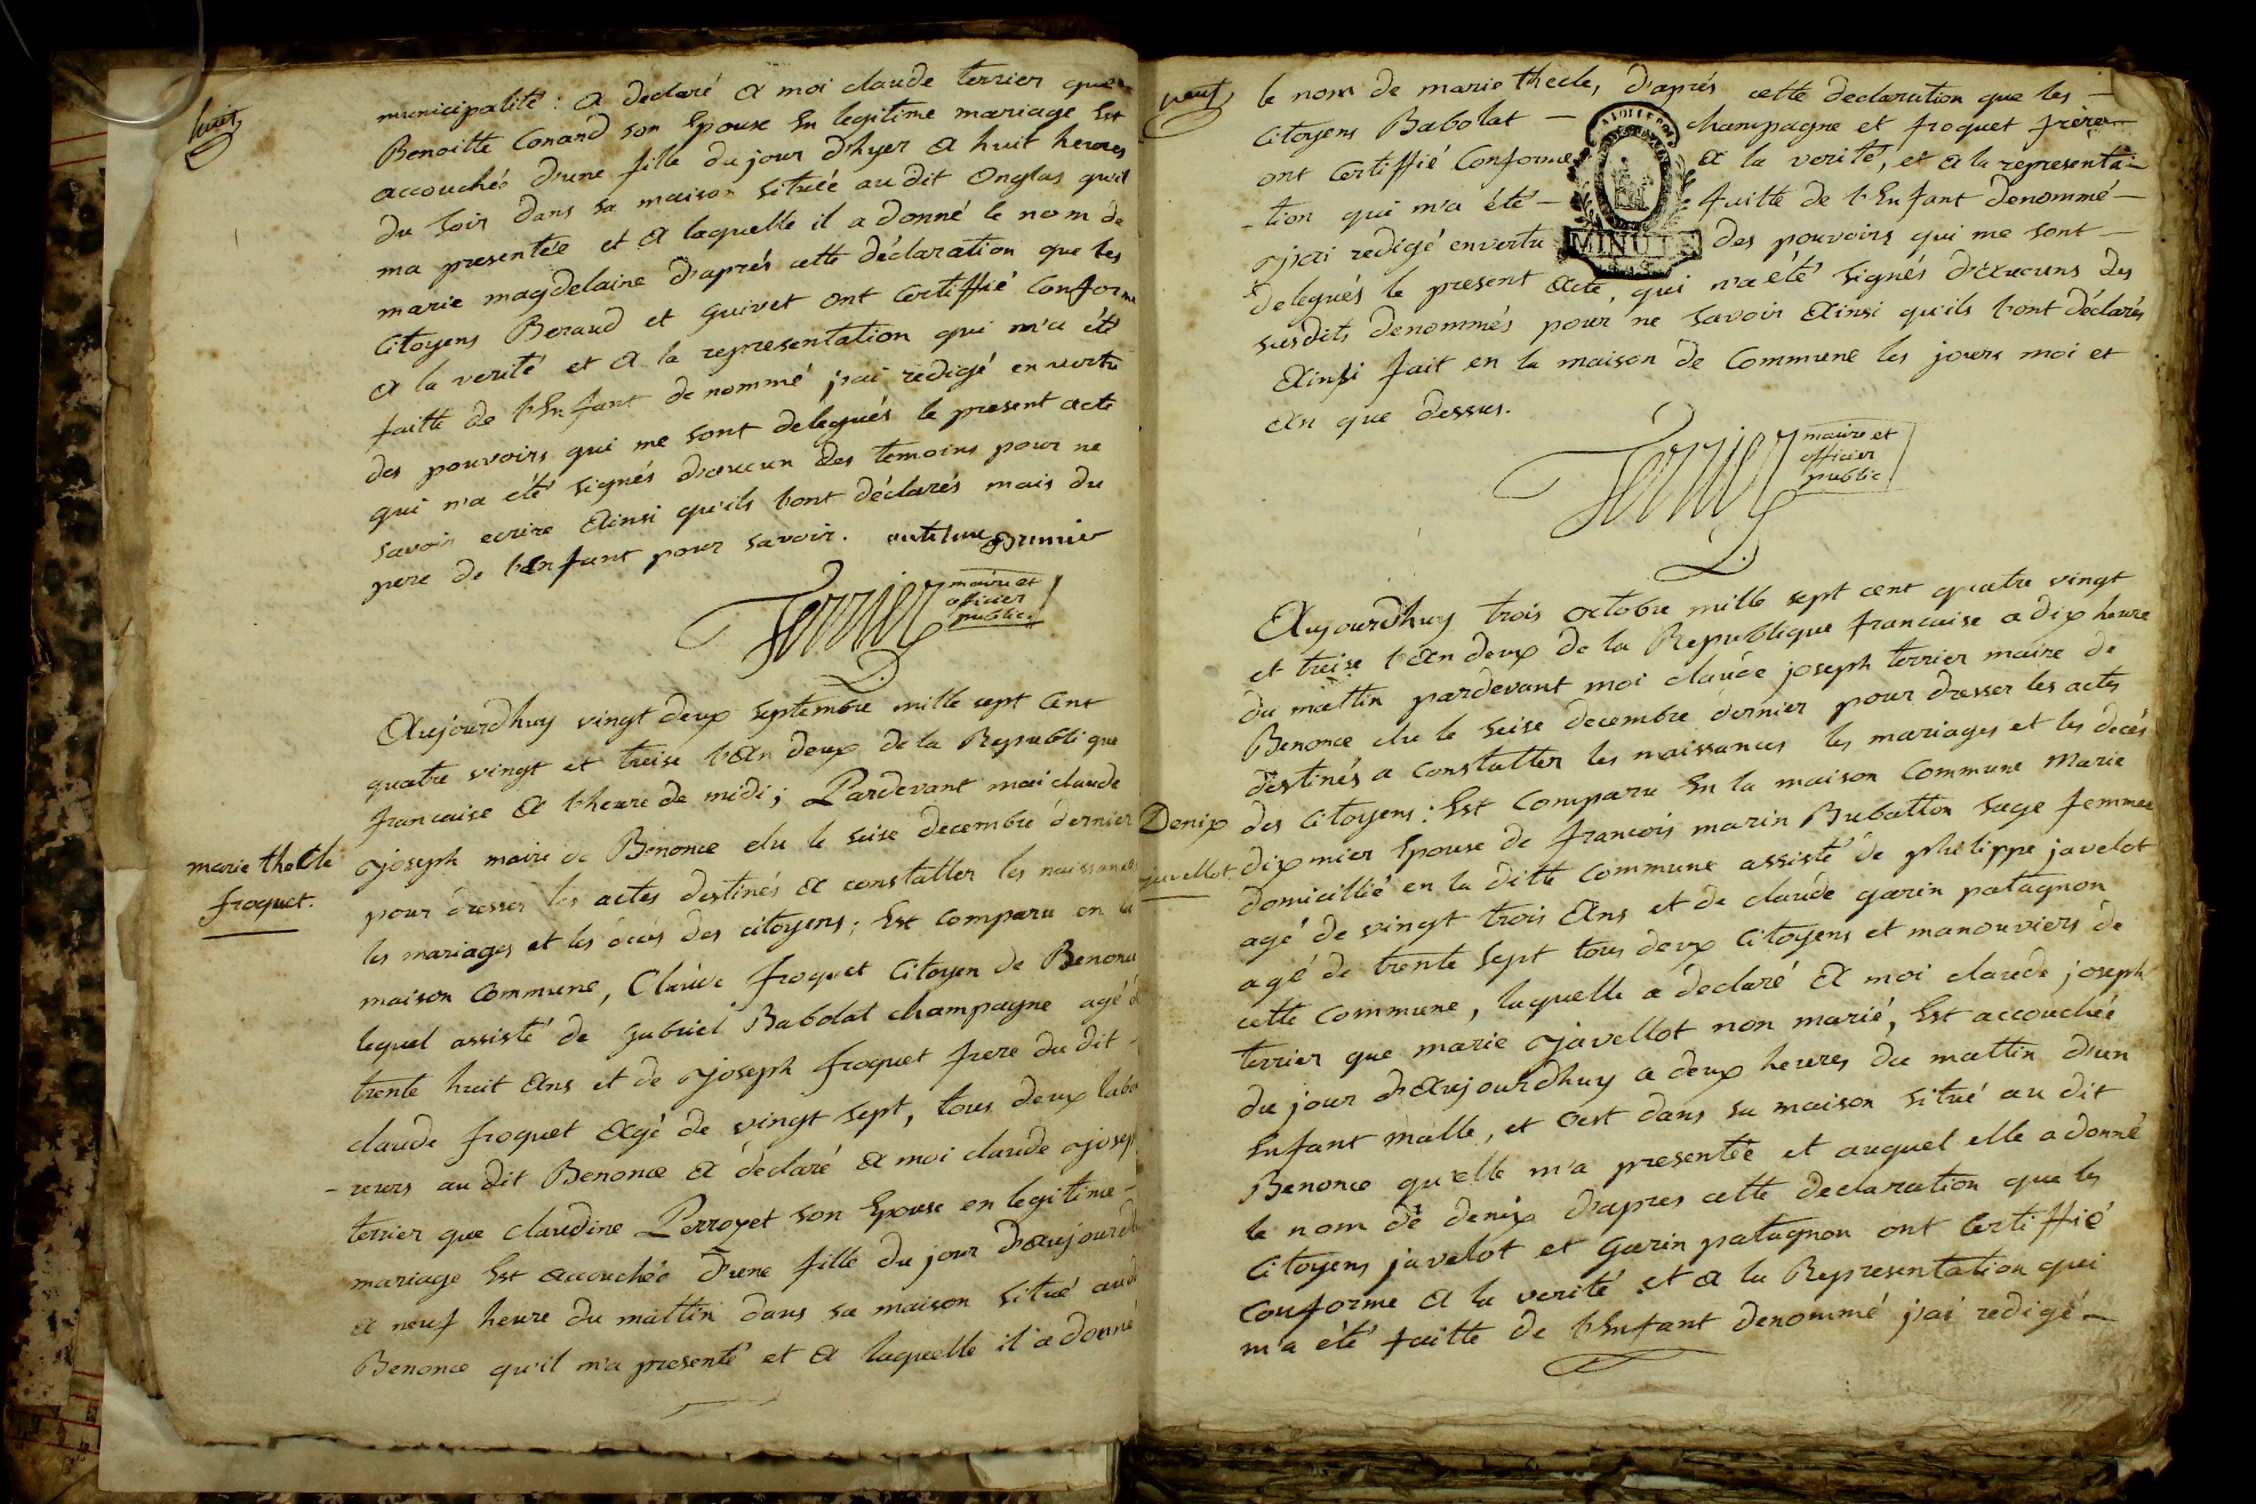 huit
municipalité : a declaré a moi claude terrier que
Benoitte Conand son Epouse En legitime mariage Est
accouchée d'une fille du jour d'hyer a huit heures
du soir dans sa maison située au dit Onglas qu'il
ma presentée et a laquelle il a donné le nom de
marie magdelaine d'aprés cette déclaration que les
Citoyens Beraud et guivet ont certiffié conforme
a la verité et a la representation qui m'a été
faitte de l'Enfant denommé j'ai redigé en vertu
des pouvoirs qui me sont delegués le present acte
qui n'a été signés d'aucun des temoins pour ne
savoir ecrire ainsi qu'ils l'ont déclarés mais du
pere de l'Enfant pour savoir.
Terrier maire et
officier
public
Aujourd'huy vingt deux septembre mille sept cent
quatre vingt et treise l'an deux de la Republique
francaise a l'heure de midi ; Pardevant moi claude
marie thecle
froquet.
joseph maire de Benonce elu le seise decembre dernier
pour dresser les actes destinés a constatter les naissances
les mariages et les décés des citoyens ; Est comparu en la
maison commune, Claude froquet Citoyen de Benonce
lequel assisté de gabriel Babolat champagne agé de
trente huit ans et de joseph froquet frere du dit
claude froquet agé de vingt sept, tous deux labou
- reurs au dit Benonce a déclaré a moi claude joseph
terrier que claudine Perroyet son Epouse en legitime -
mariage Est accouchée d'une fille du jour d'aujourd'hu
a neuf heure du mattin dans sa maison situé au d
Benonce qu'il m'a presenté et a laquelle il a donné
neuf
le nom de marie thecle, d'aprés cette declaration que les -
Citoyens Babolat - champagne et froquet frere -
ont certiffié Conforme a la verité, et a la representa -
- tion qui m'a été - faitte de l'Enfant denommé -
j'ai redigé en vertu des pouvoirs qui me sont -
MINUTE
delegués le present acte, qui n'a été signés d'aucuns des
susdits denommés pour ne savoir ainsi qu'ils l'ont déclarés
ainsi fait en la maison de Commune les jours moi et
an que dessus.
Terrier maire et
officier
public
Aujourd'huy trois octobre mille sept cent quatre vingt
et treise l'an deux de la Republique francaise a dix heure
du mattin pardevant moi claude joseph terrier maire de
Benonce elu le seise decembre dernier pour dresser les actes
destinés a constatter les naissances les mariages et les decés
Denix
javellot
des Citoyens : Est Comparu En la maison Commune Marie
dixmier Epouse de francois marin Bubatton sage femme
domicillié en la ditte Commune assisté de philippe javelot
agé de vingt trois ans et de claude garin patagnon
agé de trente sept tous deux Citoyens et manouviers de
cette Commune, laquelle a déclaré a moi claude joseph
terrier que marie javellot non marié, Est accouchée
du jour d'aujourd'huy a deux heures du mattin d'un
Enfant malle, et cest dans sa maison situé au dit
Benonce qu'elle m'a presentée et auquel elle a donné
le nom de denix d'apres cette declaration que les
Citoyens javelot et garin patagnon ont certiffié
Conforme a la verité et a la Representation qui
m'a été faitte de l'Enfant denommé j'ai redigé -